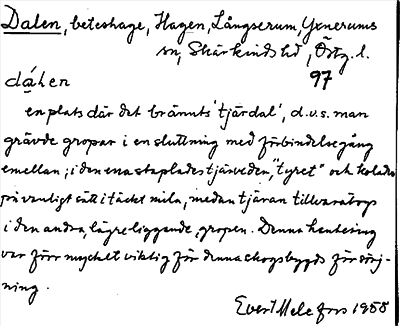 Dalen, beteshage, Hagen, Långserum, Yxnerums
sn, Skärkinds hd, Östg. l.
97
dálen
en plats där det bränts 'tjärdal', d.v.s. man
grävde gropar i en sluttning med förbindelsegång
emellan; i den ena staplades tjärveden, "tyret" och kolades
på vanligt sätt i täckt mila, medan tjäran tillvaratogs
i den andra, lägre liggande, gropen. Denna hantering
var förr mycket viktig för denna skogsbygds försörj-
ning.
Evert Melefors 1955